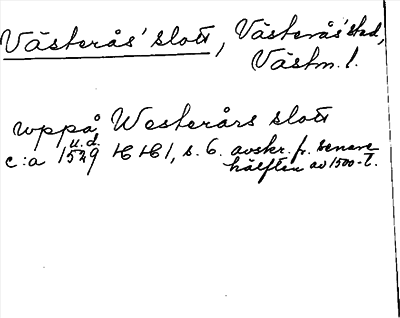 Västerås' slott, Västerås' stad,
Västm. l.
wppå Westerårs slott
c:a 1529 u.d. HH 1, s. 6. avskr. fr. senare
hälften av 1500-t.